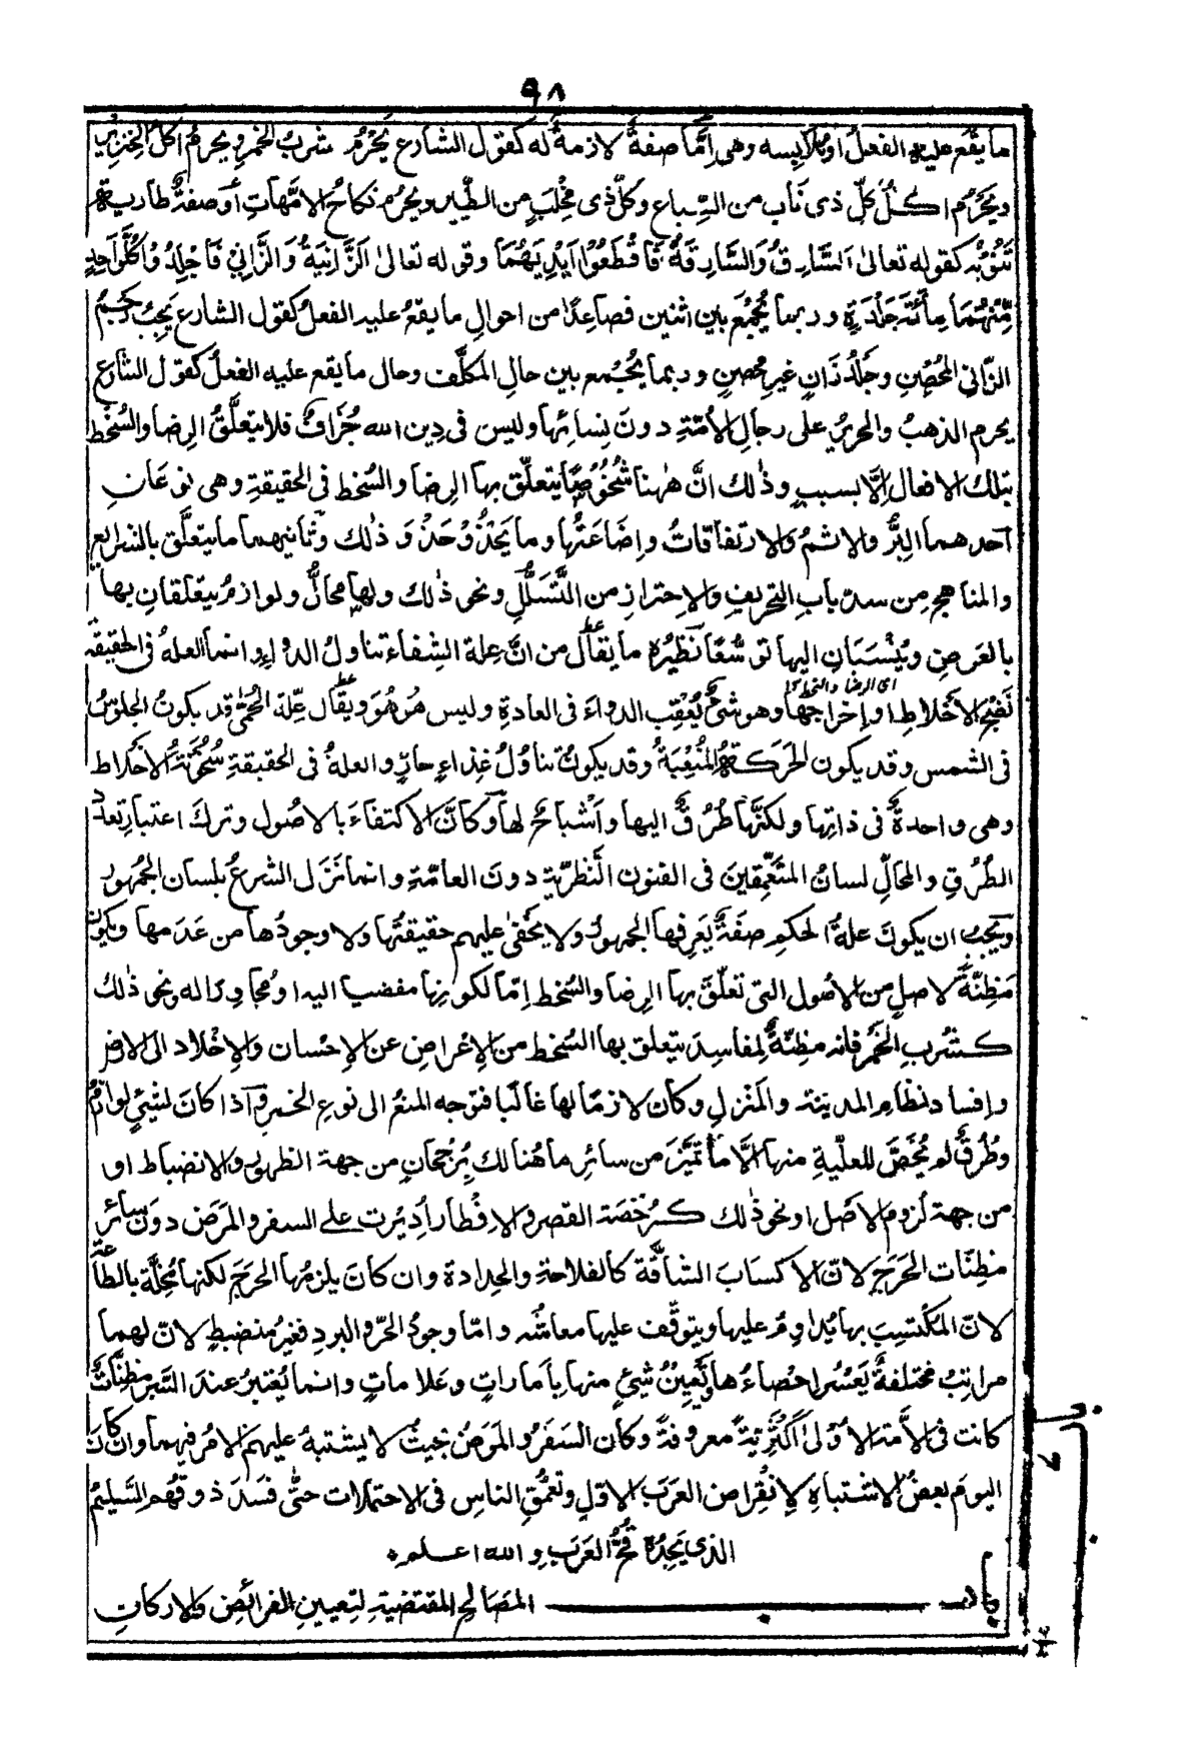 ٩٨
ما يقع عليه الفعل او يلابسه وهى اِمَّا صفةٌ لازمةٌ له كقول الشارع يَحْرُمُ شربُ الخمر ويحرمُ اكلُ الخنزير
ويَحْرُم اكلُ كلّ ذى نَاب من السِّباع وكلّ ذى مِخْلَبٍ من الطَّير ويحرُم نكاحُ الامَّهاتِ أو صفةٌ طارية
تَنُوبُه كقوله تعالىٰ اَلسَّارِقُ وَالسَّارِقَةُ فَاقْطَعُوْا اَيْدِيَهُمَا وقوله تعالىٰ اَلزَّانِيَةُ وَالزَّانِيْ فَاجْلِدُوْا كُلَّ وَاحِدٍ
مِّنْهُمَا مِأَئَةَ جَلْدَةٍ وربما يُجْمَعُ بين اثنين فصاعدًا من احوالِ ما يقعُ عليه الفعلُ كقول الشارع يَجِبُ رجمُ
الزّانى المُحْصِنِ وجَلْدُ زَانٍ غيرِ مُحصنٍ وربما يُجْمع بين حالِ المكلَّف وحال ما يقع عليه الفعلُ كقول الشارع
يحرم الذهبُ والحريرُ على رجالِ الاُمّةِ دونَ نِسائِها وليس فى دِين الله جُزَافٌ فلا يتعلَّقُ الرِضا والسُخط
بتلك الافعال اِلَّا بسببٍ وذٰلك انَّ هٰهنا شُخُوْصًا يتعلّق بها الرِضا والسُخط فى الحقيقةِ وهى نوعَانِ
اَحدهما البِرُّ والاثمُ والارتفاقاتُ واِضَاعَتُها وما يَحْذُوْ حَذْوَ ذٰلك وثَانيهما ما يتعلَّق بالشرايع
والمناهجِ من سدّ بابِ التحريفِ والاِحترازِ من التَّسَلُّلِ ونحو ذٰلك ولها محالٌّ ولوازمُ يتعلقانِ بها
بالعَرضِ ويُنْسَبَانِ اليها توسُّعًا نَظِيْرُه ما يقال من انَّ عِلة الشِفاء تناولُ الدواءِ وانما العلةُ فى الحقيقة
اى الرضا والسخط
نُضْجُ الاَخلاطِ او اِخراجُها وهو شئٌ يُعْقِبُ الدواءَ فى العادةِ وليس هُوَ هُوَ ويقال عِلّة الحُمّىٰ قد يكونُ الجلوسُ
فى الشمس وقد يكون الحَرَكةُ المُتْعِبَةُ وقد يكونُ تناوُلُ غِذاءٍ حارٍّ والعلةُ فى الحقيقةِ سُخُونَةُ الاَخلاط
وهى واحدةٌ فى ذاتِها ولكنَّها طُرُقٌ اليها واَشْباحٌ لها وكانَ الاكتفاءَ بالاصُول وتركَ اعتبارِ تعدُّد
الطُرُقِ والمحالِّ لسانُ المتعَمِّقينَ فى الفنون النَّظرِيّةِ دونَ العامّةِ وانما نَزَل الشرعُ بلسان الجُمهور
ويَجِبُ ان يكونَ علةُ الحكمِ صفَةً يَعرِفها الجمهورُ ولا يخْفىٰ عليهم حقيقتُها ولا وجودُها من عَدَمها وتكون
مَظِنّةً لاصلٍ من الاُصول التى تعلَّقَ بها الرِضا والسُخط اِمّا لكونِها مفضيا اليه او مُجاورًا له ونحو ذٰلك
كشُربِ الخَمْرِ فانه مظِنّةٌ لِمفاسِدَ يتعلق بها السُخط من الاِعْراضِ عن الاِحْسان والاِخْلاد الى الارض
واِفساد نظامِ المدينةِ والمَنْزِلِ وكان لازمًا لها غالبًا فتوجه المنعُ الى نوعِ الخمرِ واذا كانَ لشئٍ لوازمُ
وطُرُقٌ لم يُخَصَّ للعلّيةِ منها اِلّا ما تَميَّزَ من سائرِ ما هُنالك بِرُجحانٍ من جهة الظهورِ والانضباط او
من جهة لُزومِ الاَصلِ او نحو ذٰلك كرُخصَة القصرِ والاِفْطارِ أُدِيْرت على السفرِ والمَرَضِ دونَ سائر
مظِنّات الحَرَجِ لانّ الاكسابَ الشاقّة كالفلاحةِ والحِدادة وان كانَ يلزمُها الحرَجَ لكنها مُخِلّة بالطاعة
لانّ المكْتسِبَ بها يُداوِمُ عليها ويتوقّف عليها معاشُه وامّا وجودُ الحرّ والبردِ فغيرُ منضبطٍ لانّ لهما
مراتِبُ مختلفةً يَعْسُر احْصاءُها وتَعِيينُ شئٍ منها بِاَماراتٍ وعَلاماتٍ وانما يُعْتبرُ عندَ السَّبرِ مَظِنَّاتٌ
كانت فى الاُمّة الاُوْلىٰ أَكْثَرِيّةً معروفةً وكان السَفَرُ والمَرَضُ بحيثُ لا يشتبهُ عليهم الامُر فيهما وان كانَ
اليومَ بعضُ الاشتباهِ لاِنْقِراضِ العَرَبِ الاوّلِ وتعمُّقِ الناسِ فى الاحتمالات حتّٰى فسَدَ ذوقُهم السَّليمُ
الذى يَجِدُهُ قُحُّ العَرَبِ والله اعلم
باب المَصَالِحِ المقتضيةِ لتِعيينِ الفرائضِ والاركانِ